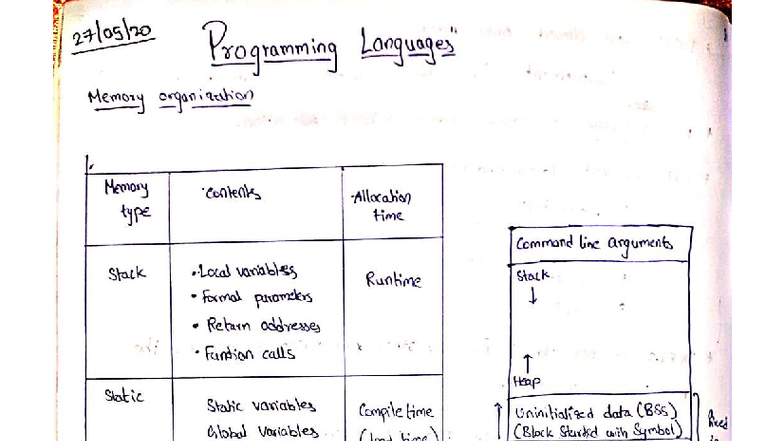 27/05/20
Programming Languages"
Memory organization
Memory type
Contents
Allocation time
Stack
• Local variables
• Formal parameters
• Return addresses
• Function calls
Runtime
Static
Static variables
Global Variables
Compile time
(load time)
Command line arguments
Stack
↓
↑
Heap
Uninitialized data (BSS)
(Block Started with Symbol)